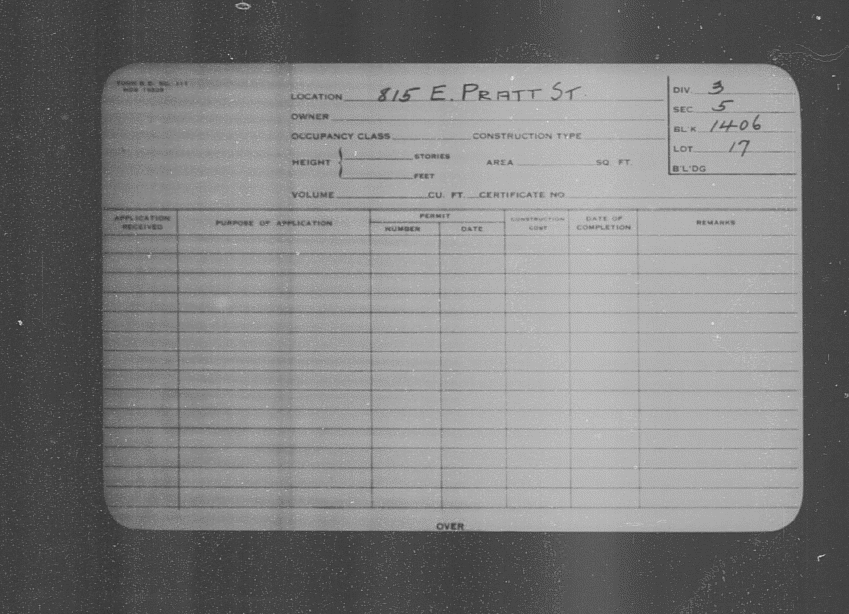 LOCATION 815 E. PRATT ST.
OWNER
OCCUPANCY CLASS CONSTRUCTION TYPE
HEIGHT { STORIES AREA SQ. FT.
FEET
VOLUME CU. FT. CERTIFICATE NO.
DIV. 3
SEC. 5
BL'K 1406
LOT 17
B'L'DG
APPLICATION RECEIVED PURPOSE OF APPLICATION PERMIT CONSTRUCTION COST DATE OF COMPLETION REMARKS
NUMBER DATE
OVER